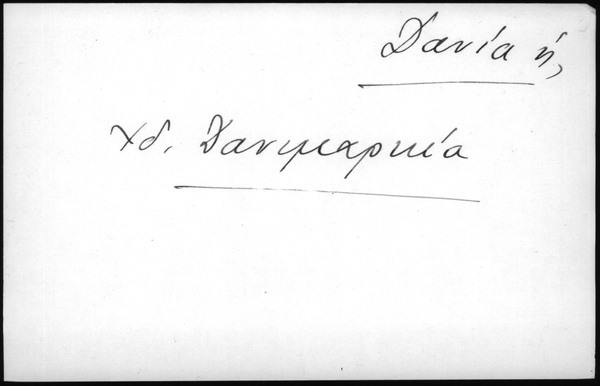 Δανία ἡ,
χδ. Δανιμαρκία